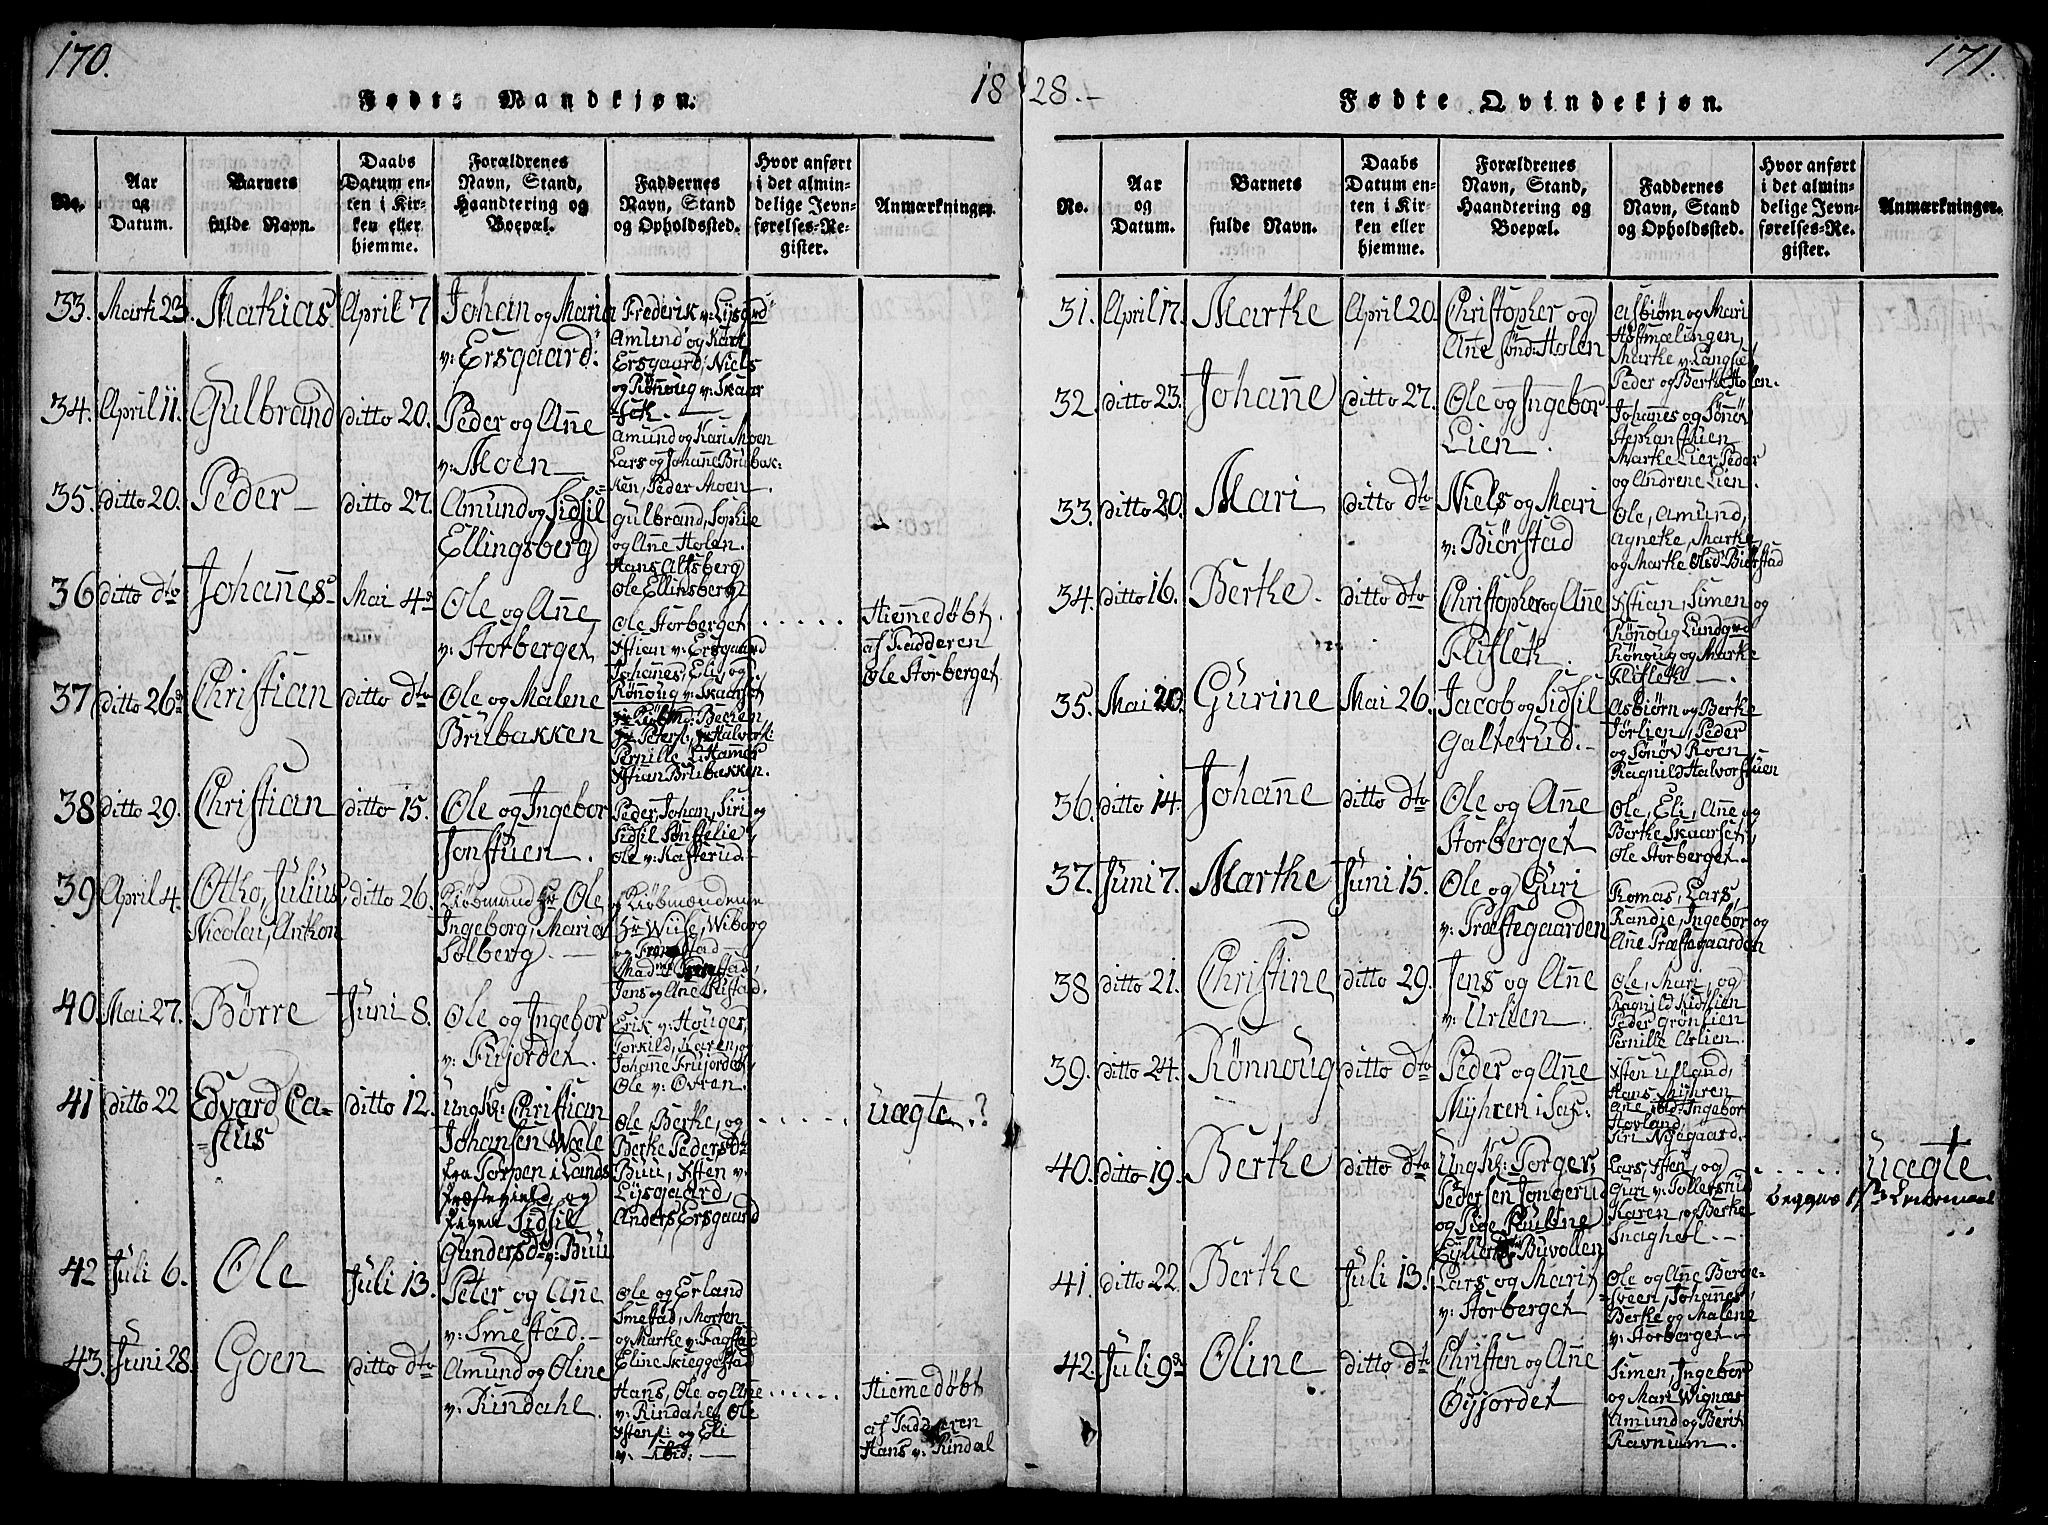 170.
1828.-
171.
Fødte Mandkjøn.
No.
Aar og Datum.
Barnets fulde Navn.
Daabs Datum enten i Kirken eller hjemme.
Forældrenes Navn, Stand, Haandtering og Boepæl.
Faddernes Navn, Stand og Opholdssted.
Hvor anført i det almindelige Jevnførelses-Register.
Anmærkninger.
33. Marti 23. Mathias April 7 Johan og Maria
v: Ersgaard.
Frederik v: Lysgrd
Amund og Kari
Ersgaard, Niels
og Rönnoug v: Skaar
34. April 11. Gulbrand ditto 20. Peder og Ane
v: Moen
Amund og Kari Moen
Lars og Johane Brubak:
ken, Peder Moen.
35. ditto 20. Peder ditto 27. Amund og Sidsil
Ellingsberg
Gulbrand, Sophie
og Ane Holen.
Hans Altsberg
Ole Ellinsberg
36 ditto dto Johanes Mai 4de Ole og Ane
v: Storberget
Ole Storberget
Xstian v: Ersgaard
Johanes, Eli, og
Rönnoug v: Skaarset
Hiemmedøbt
af Fadderen
Ole Storberget
37 ditto 26de Christian ditto dto Ole og Malene
Brubakken
Pernille L: Hammer
Xstian Brubakken.
38 ditto 29. Christian ditto 15. Ole og Ingebor
Jonstuen.
Peder, Johan, Siri og
Sidsil Sönstelie,
Ole v: Kasterud.
39 April 4. Otto, Julius, ditto 26. Kiöbmand Hr Ole,
Nicolai, Anthon
Ingeborg, Maria
Solberg.
Kiöbmændene
Hr Wiise, Wiborg
og
Jens og Ane Kistad.
40. Mai 27. Börre Juni 8. Ole og Ingebor
v: Fujordet.
Erik v: Houger,
Torkild, Karen, og
Johane Frujordet
Ole v: Ovren.
41 ditto 22 Edvard Ca-
stus
ditto 12. Ungk: Christian
Johansen Wæle
fra Torpen i Lands
Præstegield, og
Pigen Sidsil
Gundersd v: Buu
Ole, Berthe, og
Berthe Pedersdr
Buu, Xsten v:
Lysgaard,
Anders Ersgaard
uægte.?
42 Juli 6. Ole Juli 13. Peter og Ane
v: Smestad.
Ole og Erland
Smestad, Morten
og Marthe v: Fagstad
Eline Skieggestad
43. Juni 28. Goen ditto dto Amund og Oline
v: Rindahl.
Hans, Ole og Ane
v: Rindahl, Ole
Xstens: og Eli
v: ibid:
Hiemmedøbt
af Fadderen
Hans v: Rindal
Fødte Qvindekjøn.
No.
Aar og Datum.
Barnets fulde Navn.
Daabs Datum enten i Kirken eller hjemme.
Forældrenes Navn, Stand, Haandtering og Boepæl.
Faddernes Navn, Stand og Opholdssted.
Hvor anført i det almindelige Jevnførelses-Register.
Anmærkninger.
31. April 17. Marthe April 20. Christopher og
Ane Sönd: Holen
Asbiörn og Mari
Höstmælingen,
Marthe v: Langset
Peder og Berthe Holen.
32. ditto 23. Johanne ditto 27. Ole og Ingebor
Lien.
Johanes og Sönöv
Stephanstuen
Marthe Lier, Peder
og Andrene Lien.
33. ditto 20. Mari ditto dto Niels og Mari
v: Biörstad
Ole, Amund,
Agnethe, Marthe,
og Marthe Olsd: Biörstad
34. ditto 16. Berthe. ditto dto Christopher og Ane
Klisletk.
Xstian, Simen og
Rönnoug Lundgrd
Rönoug og Marthe
35. Mai 20. Gurine Mai 26. Jacob og Sidsil
Galterud.
Asbiörn og Berthe
Jörlien, Peder
og Sönöv Roen
Ragnild Halvorstuen
36. ditto 14. Johane ditto dto Ole og Ane
Storberget
Ole, Eli, Ane og
Berthe Skaarset,
Ole Storberget.
37. Juni 7. Marthe Juni 15. Ole og Guri
v: Præstegaarden
Tomas, Lars,
Randie, Ingebor og
Ane Præstegaarden
38 ditto 21. Christine ditto 29. Jens og Ane
v: Urlien.
Ole, Mari, og
Ragnild Kidslien
Peder Grönlien
Pernille Urlien.
39. ditto 24. Rønnoug ditto dto Peder og Ane
Myhren i Sax:
Xsten Ulland,
Hans Myhren
Ane ibid: Ingebor
Hovland,
Siri Nyegaard.
40. ditto 19. Berthe ditto dto Ungk: Torger
Pedersen Jongerud
og Pige Pauline
Buvollen
Lars, Xsten, og
Guri v: Tollerstrud
Karen, og Berthe
Snaghol.
uægte
begges 1ste Leiermaal
41. ditto 22. Berthe Juli 13. Lars og Marit
v: Storberget
Ole og Ane Borge-
sveen, Johanes,
Berthe og Malene
v: Storberget
42. Juli 9de Oline ditto dto Christen og Ane
Öyjordet
Simen, Ingebor
og Mari Wignæs
Amund og Berit
Ravnum.